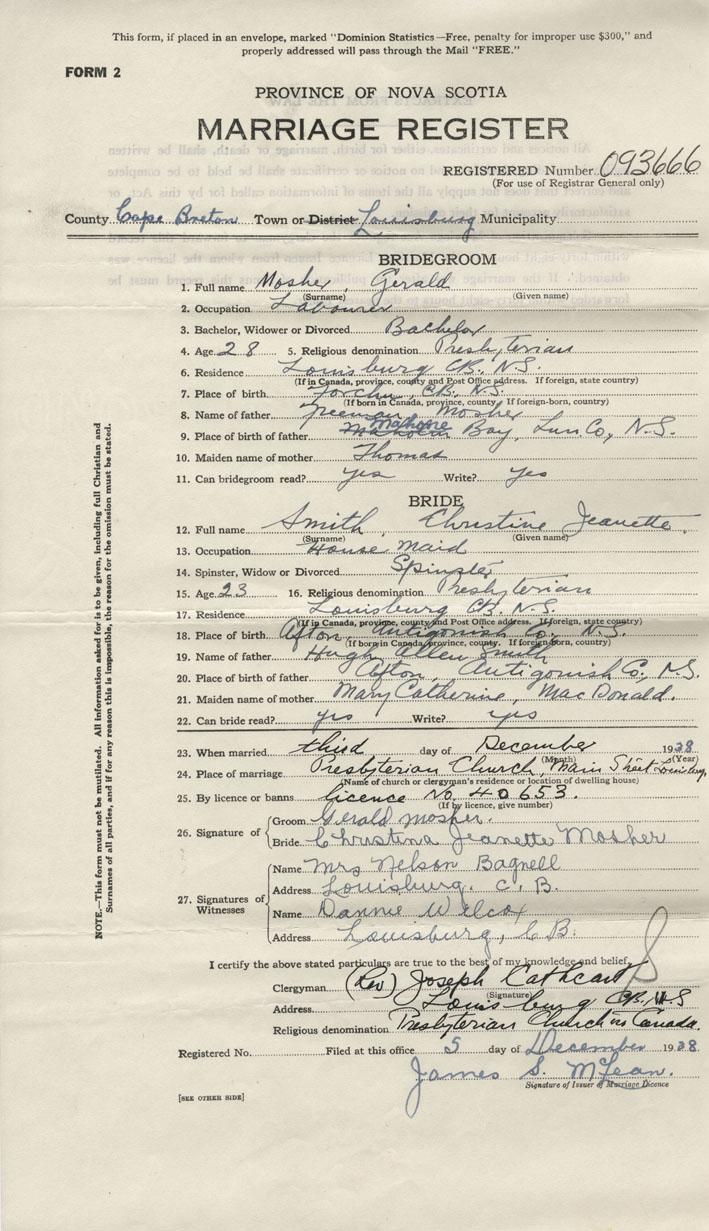 This form, if placed in an envelope, marked "Dominion Statistics—Free, penalty for improper use $300," and
properly addressed will pass through the Mail "FREE."
FORM 2
PROVINCE OF NOVA SCOTIA
MARRIAGE REGISTER
REGISTERED Number 093666
(For use of Registrar General only)
County Cape Breton Town or District Louisburg Municipality
BRIDEGROOM
1. Full name Mosher, Gerald
(Surname) (Given name)
2. Occupation Labourer
3. Bachelor, Widower or Divorced Bachelor
4. Age 28 5. Religious denomination Presbyterian
6. Residence Louisburg CB. N.S.
(If in Canada, province, county and Post Office address. If foreign, state country)
7. Place of birth Torchu, CB. N.S.
(If born in Canada, province, county. If foreign-born, country)
8. Name of father Freeman Mosher
9. Place of birth of father Mahone Bay, Lun. Co, N.S.
10. Maiden name of mother Thomas
11. Can bridegroom read? yes Write? yes
BRIDE
12. Full name Smith, Christine Jeanette
(Surname) (Given name)
13. Occupation House Maid
14. Spinster, Widow or Divorced Spinster
15. Age 23 16. Religious denomination Presbyterian
17. Residence Louisburg CB. N.S.
(If in Canada, province, county and Post Office address. If foreign, state country)
18. Place of birth Afton, Antigonish Co, N.S.
(If born in Canada, province, county. If foreign born, country)
19. Name of father Hugh Allen Smith
20. Place of birth of father Afton, Antigonish Co, N.S.
21. Maiden name of mother Mary Catherine, MacDonald.
22. Can bride read? yes Write? yes
23. When married third day of December 1938
(Month) (Year)
24. Place of marriage Presbyterian Church, Main Street Louisburg.
(Name of church or clergyman's residence or location of dwelling house)
25. By licence or banns licence No. 40653.
(If by licence, give number)
26. Signature of Groom Gerald Mosher.
Bride Christina Jeanette Mosher
27. Signatures of Witnesses
Name Mrs Nelson Bagnell
Address Louisburg. C. B.
Name Dannie Wilcox
Address Louisburg, C.B.
I certify the above stated particulars are true to the best of my knowledge and belief.
Clergyman (Rev) Joseph Cathcart
(Signature)
Address Louisburg CB. N.S
Religious denomination Presbyterian Church in Canada.
Registered No. Filed at this office 5 day of December 1938
James S. McLean.
Signature of Issuer of Marriage Licence
[SEE OTHER SIDE]
NOTE.—This form must not be mutilated. All information asked for is to be given, including full Christian and
Surnames of all parties, and if for any reason this is impossible, the reason for the omission must be stated.